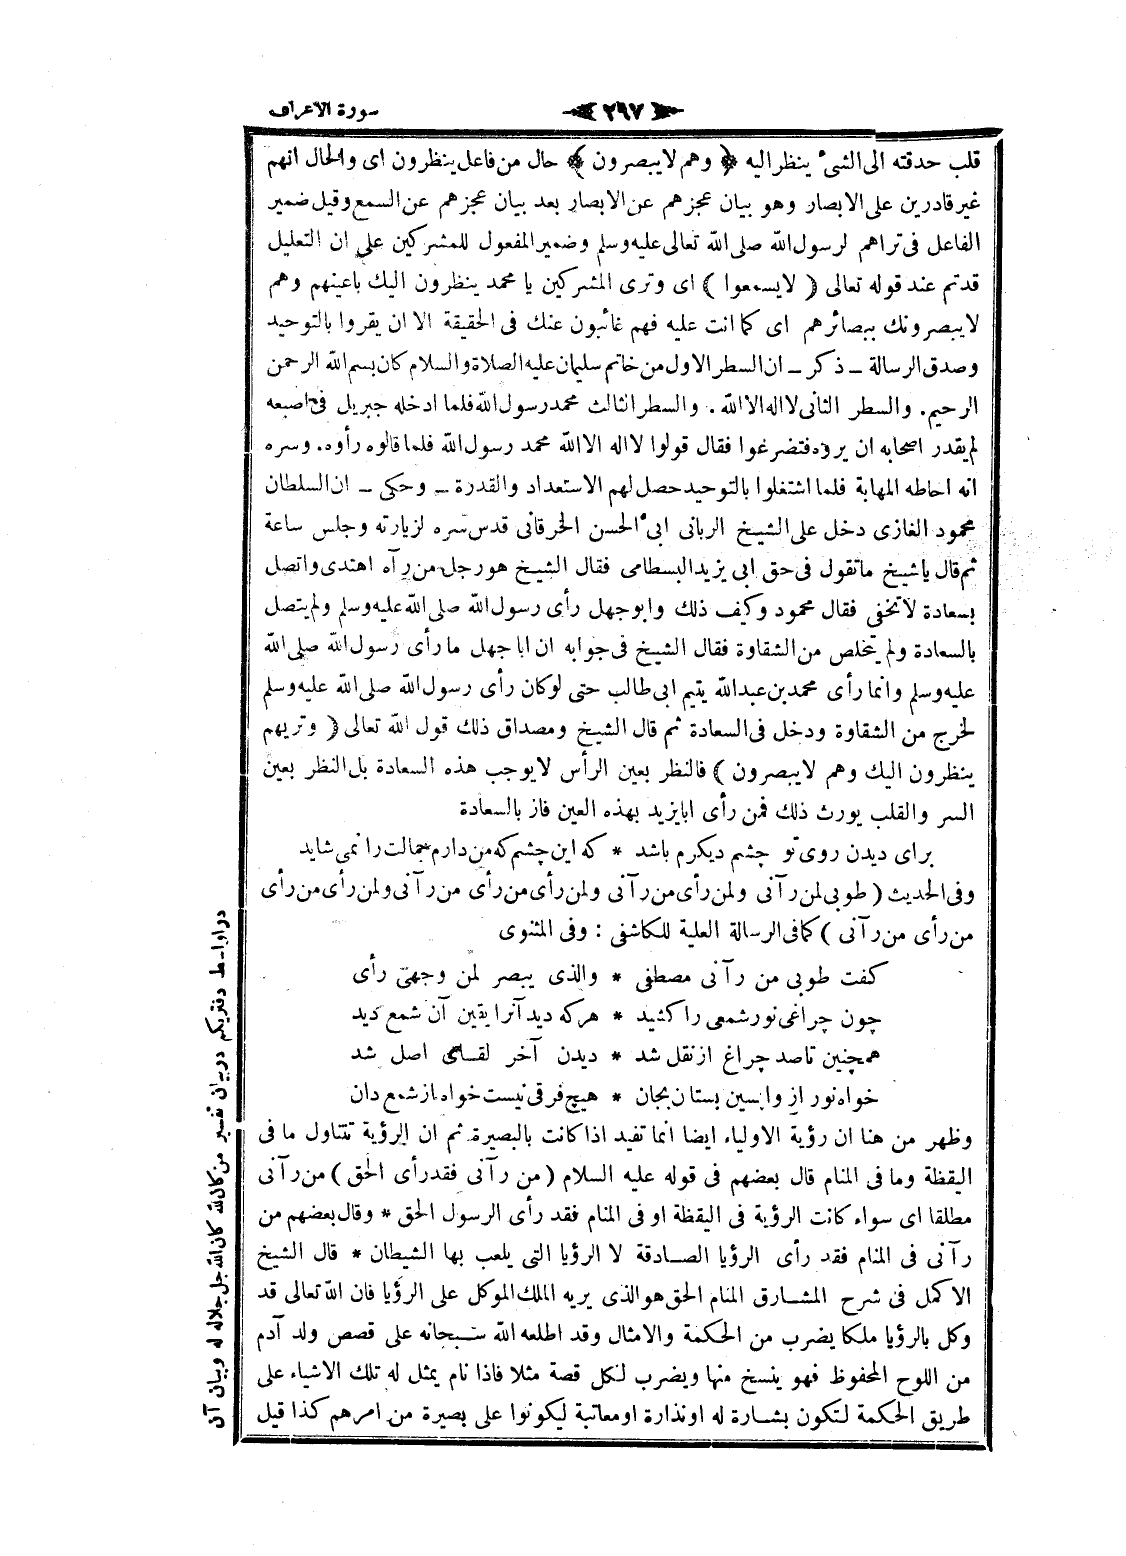 سورة الاعراف
﴿ ٢٩٧ ﴾
قلب حدقته الى الشىء ينظر اليه ﴿ وهم لايبصرون ﴾ حال من فاعل ينظرون اى والحال انهم
غير قادرين على الابصار وهو بيان عجزهم عن الابصار بعد بيان عجزهم عن السمع وقيل ضمير
الفاعل فى تراهم لرسول الله صلى الله تعالى عليه وسلم وضمير المفعول للمشركين على ان التعليل
قدتم عند قوله تعالى ( لايسمعوا ) اى وترى المشركين يا محمد ينظرون اليك باعينهم وهم
لايبصرونك ببصائرهم اى كما انت عليه فهم غائبون عنك فى الحقيقة الا ان يقروا بالتوحيد
وصدق الرسالة ـ ذكر ـ ان السطر الاول من خاتم سليمان عليه الصلاة والسلام كان بسم الله الرحمن
الرحيم. والسطر الثانى لااله الاالله. والسطر الثالث محمد رسول الله فلما ادخله جبريل فى اصبعه
لم يقدر اصحابه ان يروه فتضرعوا فقال قولوا لااله الاالله محمد رسول الله فلما قالوه رأوه. وسره
انه احاطه المهابة فلما اشتغلوا بالتوحيد حصل لهم الاستعداد والقدرة ـ وحكى ـ ان السلطان
محمود الغازى دخل على الشيخ الربانى ابى الحسن الخرقانى قدس سره لزيارته وجلس ساعة
ثم قال ياشيخ ماتقول فى حق ابى يزيد البسطامى فقال الشيخ هو رجل من رآه اهتدى واتصل
بسعادة لاتخفى فقال محمود وكيف ذلك وابوجهل رأى رسول الله صلى الله عليه وسلم ولم يتصل
بالسعادة ولم يتخلص من الشقاوة فقال الشيخ فى جوابه ان اباجهل مارأى رسول الله صلى الله
عليه وسلم وانما رأى محمد بن عبدالله يتيم ابى طالب حتى لوكان رأى رسول الله صلى الله عليه وسلم
لخرج من الشقاوة ودخل فى السعادة ثم قال الشيخ ومصداق ذلك قول الله تعالى ( وتريهم
ينظرون اليك وهم لايبصرون ) فالنظر بعين الرأس لايوجب هذه السعادة بل النظر بعين
السر والقلب يورث ذلك فمن رأى ابايزيد بهذه العين فاز بالسعادة
براى ديدن روى تو چشم ديكرم باشد * كه اين چشم كه من دارم جمالت را نمى شايد
وفى الحديث ( طوبى لمن رآنى ولمن رأى من رآنى ولمن رأى من رأى من رآنى ولمن رأى من رأى
من رأى من رآنى ) كما فى الرسالة العلية للكاشفى : وفى المثنوى
كفت طوبى من رآنى مصطفى * والذى يبصر لمن وجهى رأى
چون چراغى نور شمعى را كشيد * هركه ديد آنرا يقين آن شمع ديد
همچنين تاصد چراغ از نقل شد * ديدن آخر لقاى اصل شد
خواه نور از واپسين بستان بجان * هيچ فرقى نيست خواه از شمع دان
وظهر من هنا ان رؤية الاولياء ايضا انما تفيد اذا كانت بالبصيرة ثم ان الرؤية تتناول ما فى
اليقظة وما فى المنام قال بعضهم فى قوله عليه السلام ( من رآنى فقد رأى الحق ) من رآنى
مطلقا اى سواء كانت الرؤية فى اليقظة او فى المنام فقد رأى الرسول الحق * وقال بعضهم من
رآنى فى المنام فقد رأى الرؤيا الصادقة لا الرؤيا التى يلعب بها الشيطان * قال الشيخ
الاكمل فى شرح المشارق المنام الحق هوالذى يريه الملك الموكل على الرؤيا فان الله تعالى قد
وكل بالرؤيا ملكا يضرب من الحكمة والامثال وقد اطلعه الله سبحانه على قصص ولد آدم
من اللوح المحفوظ فهو ينسخ منها ويضرب لكل قصة مثلا فاذا نام يمثل له تلك الاشياء على
طريق الحكمة لتكون بشارة له اونذارة اومعاتبة ليكونوا على بصيرة من امرهم كذا قيل
در اواسط دفتر يكم در بيان تفسير من كان لله كان الله جل جلاله له وبيان آن